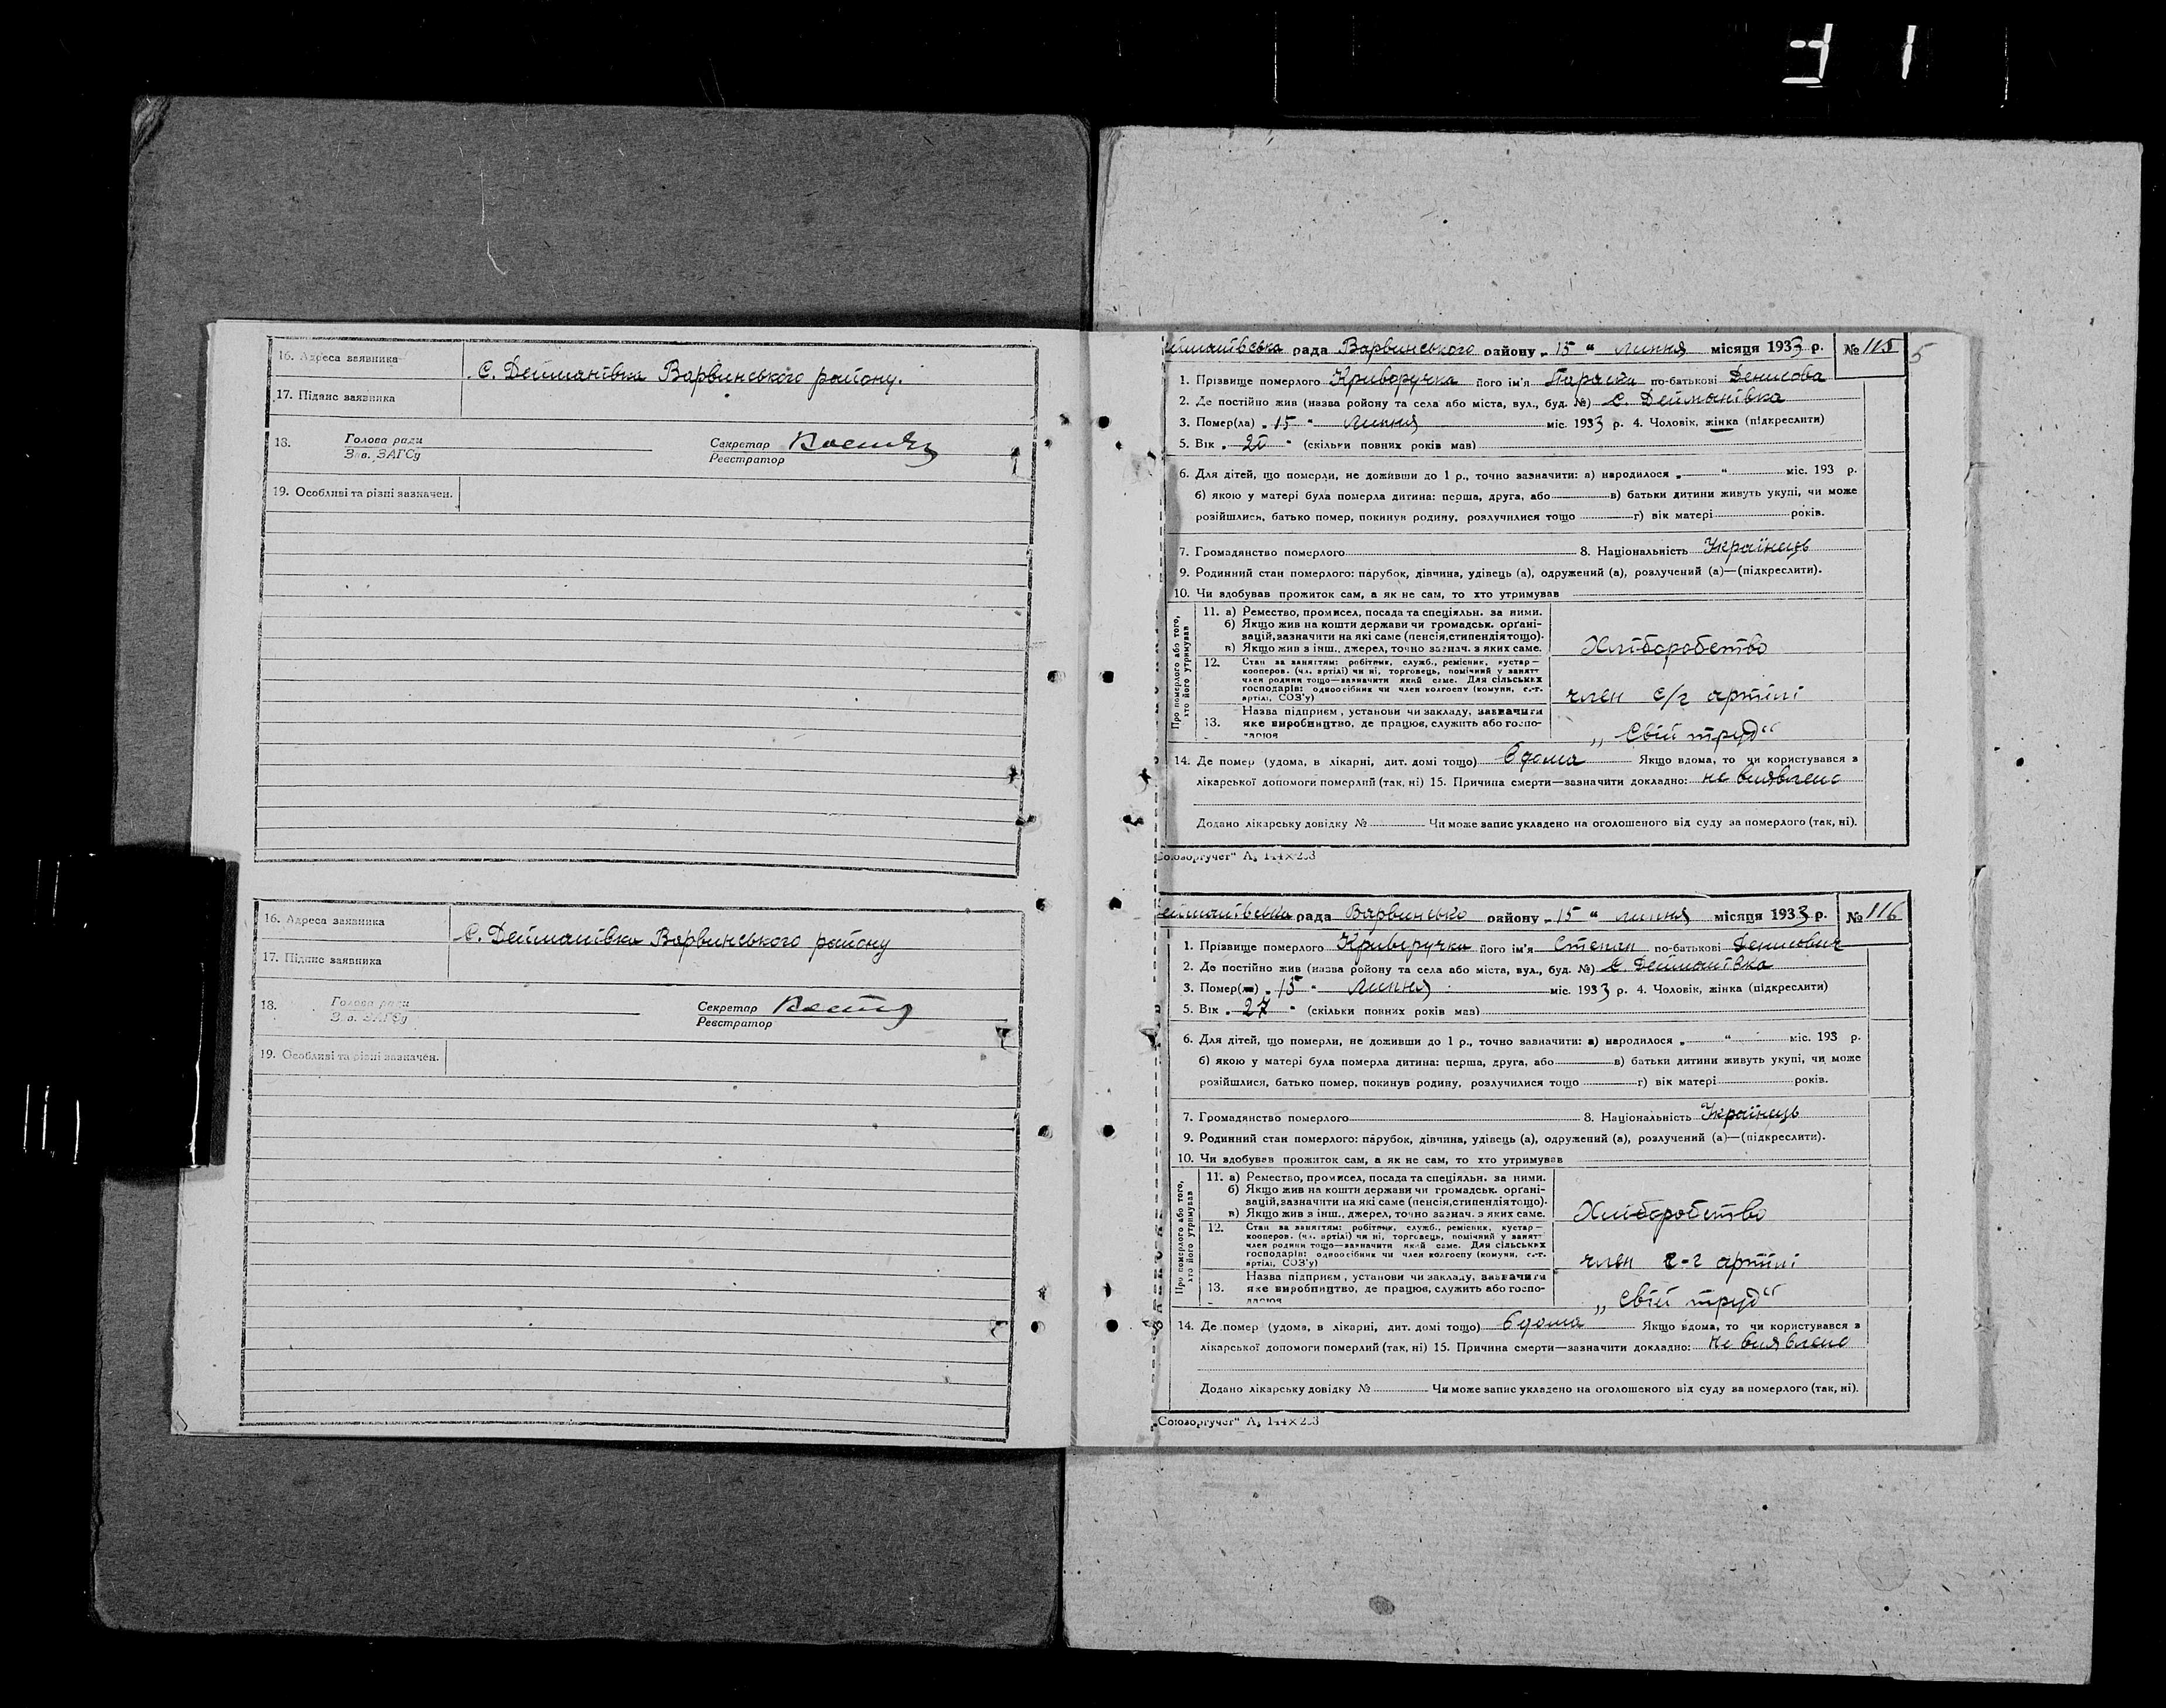 16. Адреса заявника
С. Дейманівка Варвинського району.
17. Підпис заявника
18. Голова ради
Зав. ЗАГСу
Секретар
Реєстратор
19. Особливі та різні зазначен.
16. Адреса заявника
С. Дейманівка Варвинського району
17. Підпис заявника
18. Голова ради
Зав. ЗАГСу
Секретар
Реєстратор
19. Особливі та різні зазначен.
5
ейманівська рада Варвинського району „15" липня місяця 1933 р. № 115
1. Прізвище померлого Криворучка його ім'я Параски по-батькові Денисова
2. Де постійно жив (назва ройону та села або міста, вул., буд. №) с. Дейманівка
3. Помер(ла) „15" Липня міс. 1933 р. 4. Чоловік, жінка (підкреслити)
5. Вік „20" (скільки повних років мав)
6. Для дітей, що померли, не доживши до 1 р., точно зазначити: а) народилося „ " міс. 193 р.
б) якою у матері була померла дитина: перша, друга, або в) батьки дитини живуть укупі, чи може
розійшлися, батько помер, покинув родину, розлучилися тощо г) вік матері років.
7. Громадянство померлого 8. Національність Українець
9. Родинний стан померлого: парубок, дівчина, удівець (а), одружений (а), розлучений (а)—(підкреслити).
10. Чи здобував прожиток сам, а як не сам, то хто утримував
Про померлого або того, хто його утримував
11. а) Ремество, промисел, посада та спеціяльн. за ними.
б) Якщо жив на кошти держави чи громадськ. органі-
зацій, зазначити на які саме (пенсія, стипендія тощо).
в) Якщо жив з інш., джерел, точно зазнач. з яких саме.
Хліборобство
12. Стан за заняттям: робітник, служб., ремісник, кустар—
кооперов. (чл. артілі) чи ні, торговець, помічний у занятт
член родини тощо—зазначити який саме. Для сільських
господарів: одноосібник чи член колгоспу (комуни, с.-г.
артілі, СОЗ'у)
член с/г артілі
13. Назва підприєм, установи чи закладу, зазначити
яке виробництво, де працює, служить або госпо-
дарює
„Свій труд"
14. Де помер (удома, в лікарні, дит. домі тощо) вдома Якщо вдома, то чи користувався з
лікарської допомоги померлий (так, ні) 15. Причина смерти—зазначити докладно: не виявлено
Додано лікарську довідку № Чи може запис укладено на оголошеного від суду за померлого (так, ні).
Союзоргучет" А₅ 144×203
ейманівська рада Варвинсько району „15" липня місяця 1933 р. № 116
1. Прізвище померлого Криворучка його ім'я Степан по-батькові Денисович
2. Де постійно жив (назва ройону та села або міста, вул., буд. №) с. Дейманівка
3. Помер(ла) „15" Липня міс. 1933 р. 4. Чоловік, жінка (підкреслити)
5. Вік „27" (скільки повних років мав)
6. Для дітей, що померли, не доживши до 1 р., точно зазначити: а) народилося „ " міс. 193 р.
б) якою у матері була померла дитина: перша, друга, або в) батьки дитини живуть укупі, чи може
розійшлися, батько помер, покинув родину, розлучилися тощо г) вік матері років.
7. Громадянство померлого 8. Національність Українець
9. Родинний стан померлого: парубок, дівчина, удівець (а), одружений (а), розлучений (а)—(підкреслити).
10. Чи здобував прожиток сам, а як не сам, то хто утримував
Про померлого або того, хто його утримував
11. а) Ремество, промисел, посада та спеціяльн. за ними.
б) Якщо жив на кошти держави чи громадськ. органі-
зацій, зазначити на які саме (пенсія, стипендія тощо).
в) Якщо жив з інш., джерел, точно зазнач. з яких саме.
Хліборобство
12. Стан за заняттям: робітник, служб., ремісник, кустар—
кооперов. (чл. артілі) чи ні, торговець, помічний у занятт
член родини тощо—зазначити який саме. Для сільських
господарів: одноосібник чи член колгоспу (комуни, с.-г.
артілі, СОЗ'у)
член с-г артілі
13. Назва підприєм, установи чи закладу, зазначити
яке виробництво, де працює, служить або госпо-
дарює
„Свій труд"
14. Де помер (удома, в лікарні, дит. домі тощо) вдома Якщо вдома, то чи користувався з
лікарської допомоги померлий (так, ні) 15. Причина смерти—зазначити докладно: не виявлено
Додано лікарську довідку № Чи може запис укладено на оголошеного від суду за померлого (так, ні).
„Союзоргучет" А₅ 144×203